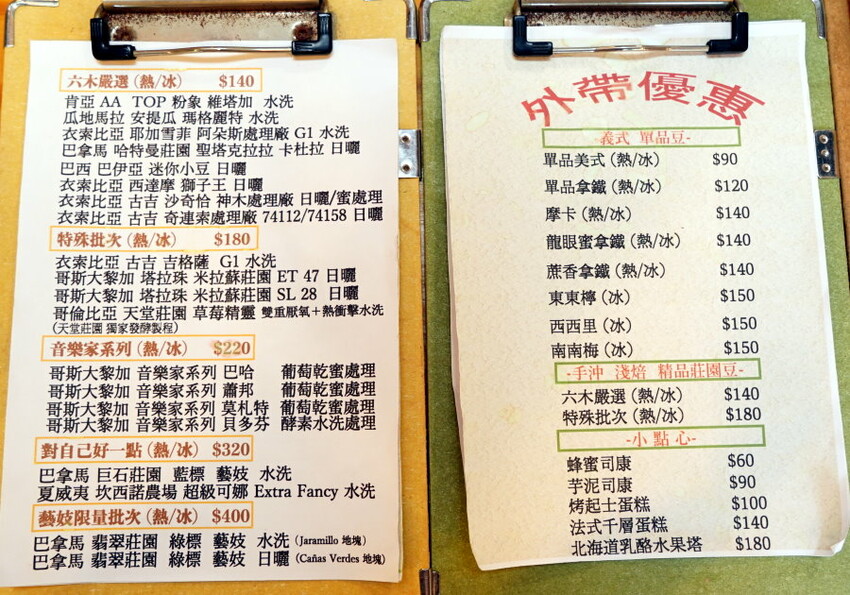 六木嚴選(熱/冰) $140
肯亞 AA TOP 粉象 維塔加 水洗
瓜地馬拉 安提瓜 瑪格麗特 水洗
衣索比亞 耶加雪菲 阿朵斯處理廠 G1 水洗
巴拿馬 哈特曼莊園 聖塔克拉拉 卡杜拉 日曬
巴西 巴伊亞 迷你小豆 日曬
衣索比亞 西達摩 獅子王 日曬
衣索比亞 古吉 沙奇恰 神木處理廠 日曬/蜜處理
衣索比亞 古吉 奇連索處理廠 74112/74158 日曬
特殊批次(熱/冰) $180
衣索比亞 古吉 吉格薩 G1 水洗
哥斯大黎加 塔拉珠 米拉蘇莊園 ET 47 日曬
哥斯大黎加 塔拉珠 米拉蘇莊園 SL 28 日曬
哥倫比亞 天堂莊園 草莓精靈 雙重厭氧+熱衝擊水洗
(天堂莊園 獨家發酵製程)
音樂家系列(熱/冰) $220
哥斯大黎加 音樂家系列 巴哈 葡萄乾蜜處理
哥斯大黎加 音樂家系列 蕭邦 葡萄乾蜜處理
哥斯大黎加 音樂家系列 莫札特 葡萄乾蜜處理
哥斯大黎加 音樂家系列 貝多芬 酵素水洗處理
對自己好一點(熱/冰) $320
巴拿馬 巨石莊園 藍標 藝妓 水洗
夏威夷 坎西諾農場 超級可娜 Extra Fancy 水洗
藝妓限量批次(熱/冰) $400
巴拿馬 翡翠莊園 綠標 藝妓 水洗(Jaramillo 地塊)
巴拿馬 翡翠莊園 綠標 藝妓 日曬(Cañas Verdes 地塊)
外帶優惠
-義式 單品豆-
單品美式(熱/冰) $90
單品拿鐵(熱/冰) $120
摩卡(熱/冰) $140
龍眼蜜拿鐵(熱/冰) $140
蔗香拿鐵(熱/冰) $140
東東檸(冰) $150
西西里(冰) $150
南南梅(冰) $150
-手沖 淺焙 精品莊園豆-
六木嚴選(熱/冰) $140
特殊批次(熱/冰) $180
-小點心-
蜂蜜司康 $60
芋泥司康 $90
烤起士蛋糕 $100
法式千層蛋糕 $140
北海道乳酪水果塔 $180